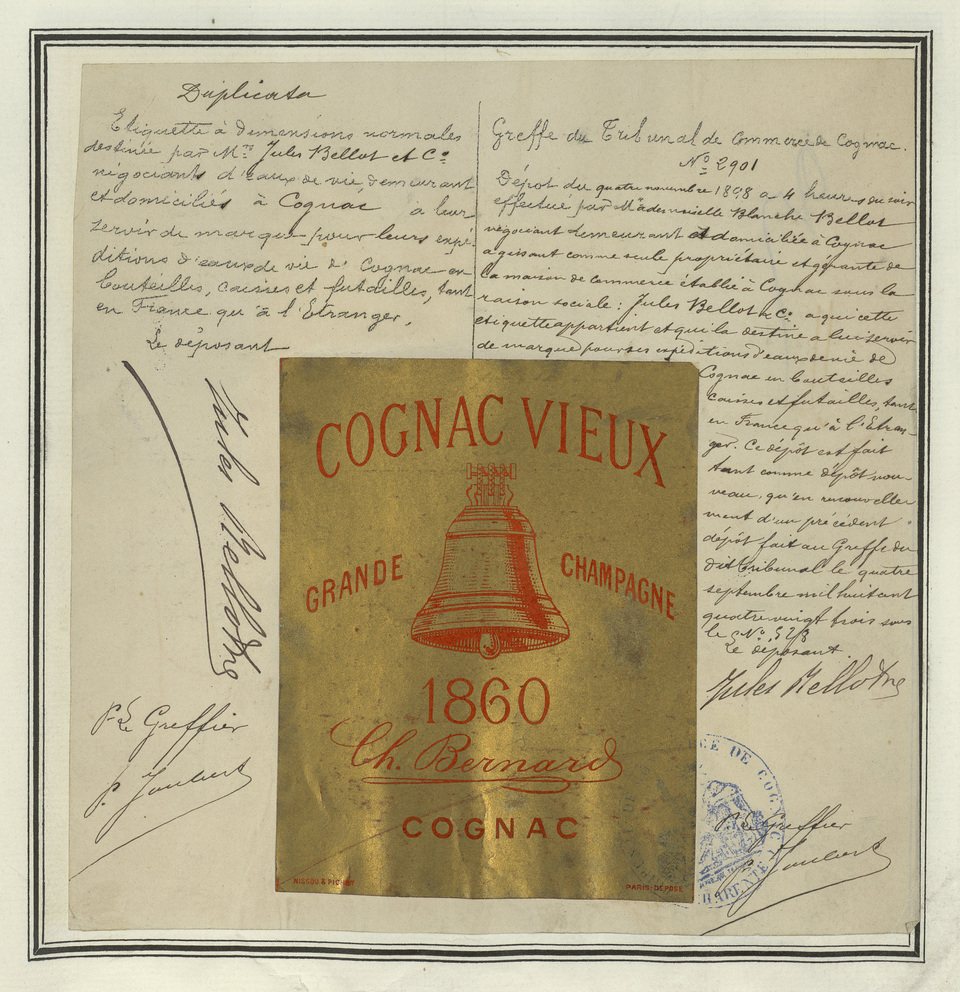 Duplicata
Etiquette à dimensions normales
destinée par Mrs Jules Bellot et Co
négociants d'eaux de vie, demeurant
et domiciliés à Cognac à leur
servir de marque pour leurs expé-
ditions d'eaux de vie de Cognac en
bouteilles, caisses et futailles, tant
en France qu'à l'Etranger.
Le déposant
Jules Bellot & Co
Pr Le Greffier
P. Joubert
Greffe du Tribunal de Commerce de Cognac.
No 2901
Dépot du quatre novembre 1898 a 4 heures du soir
effectué par Mademoiselle Blanche Bellot
négociant demeurant et domiciliée à Cognac
agissant comme seule propriétaire et gérante de
la maison de commerce établie à Cognac sous la
raison sociale: Jules Bellot & Co a qui cette
etiquette appartient et qui la destine a lui servir
de marque pour ses expéditions d'eaux de vie de
Cognac en bouteilles
caisses et futailles, tant
en France qu'à l'Etran-
ger. Ce dépôt est fait
tant comme dépôt nou-
veau, qu'en renouvelle
ment d'un précédent
dépôt fait au Greffe du
dit tribunal le quatre
septembre mil huit cent
quatre vingt trois sous
le No
Le déposant.
Jules Bellot & Co
Pr Le Greffier
P. Joubert
COGNAC VIEUX
GRANDE CHAMPAGNE
1860
Ch. Bernard
COGNAC
NISSOU & PICHOT
PARIS-DÉPOSÉ
CE DE COGNAC
CHARENTE